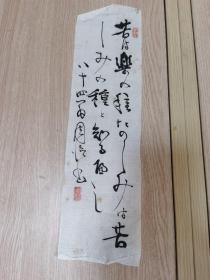 苦は樂の種たのしみは苦
しみの種と知るべし
八十四翁